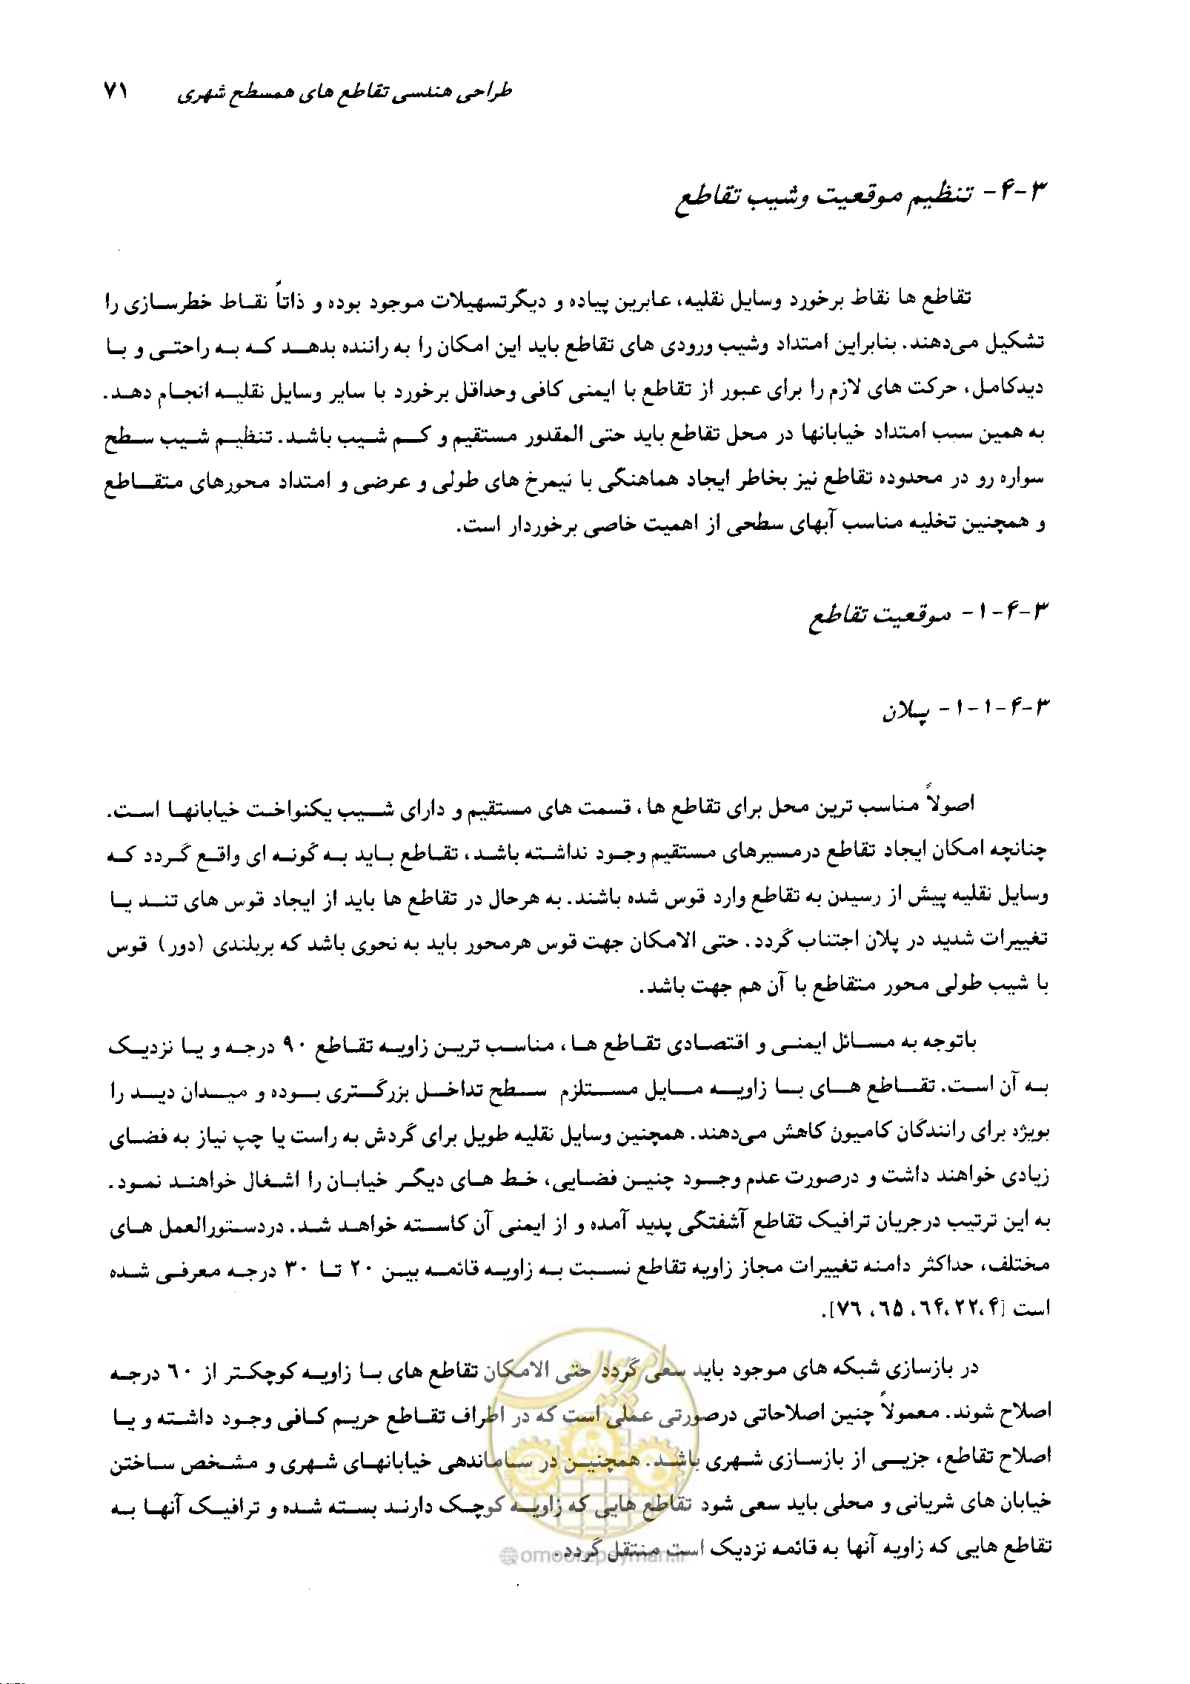 طراحی هندسی تقاطع های همسطح شهری ۷۱
۳-۴- تنظیم موقعیت وشیب تقاطع
تقاطع ها نقاط برخورد وسایل نقلیه، عابرین پیاده و دیگرتسهیلات موجود بوده و ذاتاً نقاط خطرسازی را
تشکیل می‌دهند. بنابراین امتداد وشیب ورودی های تقاطع باید این امکان را به راننده بدهد که به راحتی و با
دیدکامل، حرکت های لازم را برای عبور از تقاطع با ایمنی کافی وحداقل برخورد با سایر وسایل نقلیه انجام دهد.
به همین سبب امتداد خیابانها در محل تقاطع باید حتی المقدور مستقیم و کم شیب باشد. تنظیم شیب سطح
سواره رو در محدوده تقاطع نیز بخاطر ایجاد هماهنگی با نیمرخ های طولی و عرضی و امتداد محورهای متقاطع
و همچنین تخلیه مناسب آبهای سطحی از اهمیت خاصی برخوردار است.
۳-۴-۱- موقعیت تقاطع
۳-۴-۱-۱- پلان
اصولاً مناسب ترین محل برای تقاطع ها، قسمت های مستقیم و دارای شیب یکنواخت خیابانها است.
چنانچه امکان ایجاد تقاطع درمسیرهای مستقیم وجود نداشته باشد، تقاطع باید به گونه ای واقع گردد که
وسایل نقلیه پیش از رسیدن به تقاطع وارد قوس شده باشند. به هرحال در تقاطع ها باید از ایجاد قوس های تند یا
تغییرات شدید در پلان اجتناب گردد. حتی الامکان جهت قوس هرمحور باید به نحوی باشد که بربلندی (دور) قوس
با شیب طولی محور متقاطع با آن هم جهت باشد.
باتوجه به مسائل ایمنی و اقتصادی تقاطع ها، مناسب ترین زاویه تقاطع ۹۰ درجه و یا نزدیک
به آن است. تقاطع های با زاویه مایل مستلزم سطح تداخل بزرگتری بوده و میدان دید را
بویژه برای رانندگان کامیون کاهش می‌دهند. همچنین وسایل نقلیه طویل برای گردش به راست یا چپ نیاز به فضای
زیادی خواهند داشت و درصورت عدم وجود چنین فضایی، خط های دیگر خیابان را اشغال خواهند نمود.
به این ترتیب درجریان ترافیک تقاطع آشفتگی پدید آمده و از ایمنی آن کاسته خواهد شد. دردستورالعمل های
مختلف، حداکثر دامنه تغییرات مجاز زاویه تقاطع نسبت به زاویه قائمه بین ۲۰ تا ۳۰ درجه معرفی شده
است [۴،۲۲،۶۴، ۶۵، ۷۶].
در بازسازی شبکه های موجود باید سعی گردد حتی الامکان تقاطع های با زاویه کوچکتر از ۶۰ درجه
اصلاح شوند. معمولاً چنین اصلاحاتی درصورتی عملی است که در اطراف تقاطع حریم کافی وجود داشته و یا
اصلاح تقاطع، جزیی از بازسازی شهری باشد. همچنین در ساماندهی خیابانهای شهری و مشخص ساختن
خیابان های شریانی و محلی باید سعی شود تقاطع هایی که زاویه کوچک دارند بسته شده و ترافیک آنها به
تقاطع هایی که زاویه آنها به قائمه نزدیک است منتقل گردد.